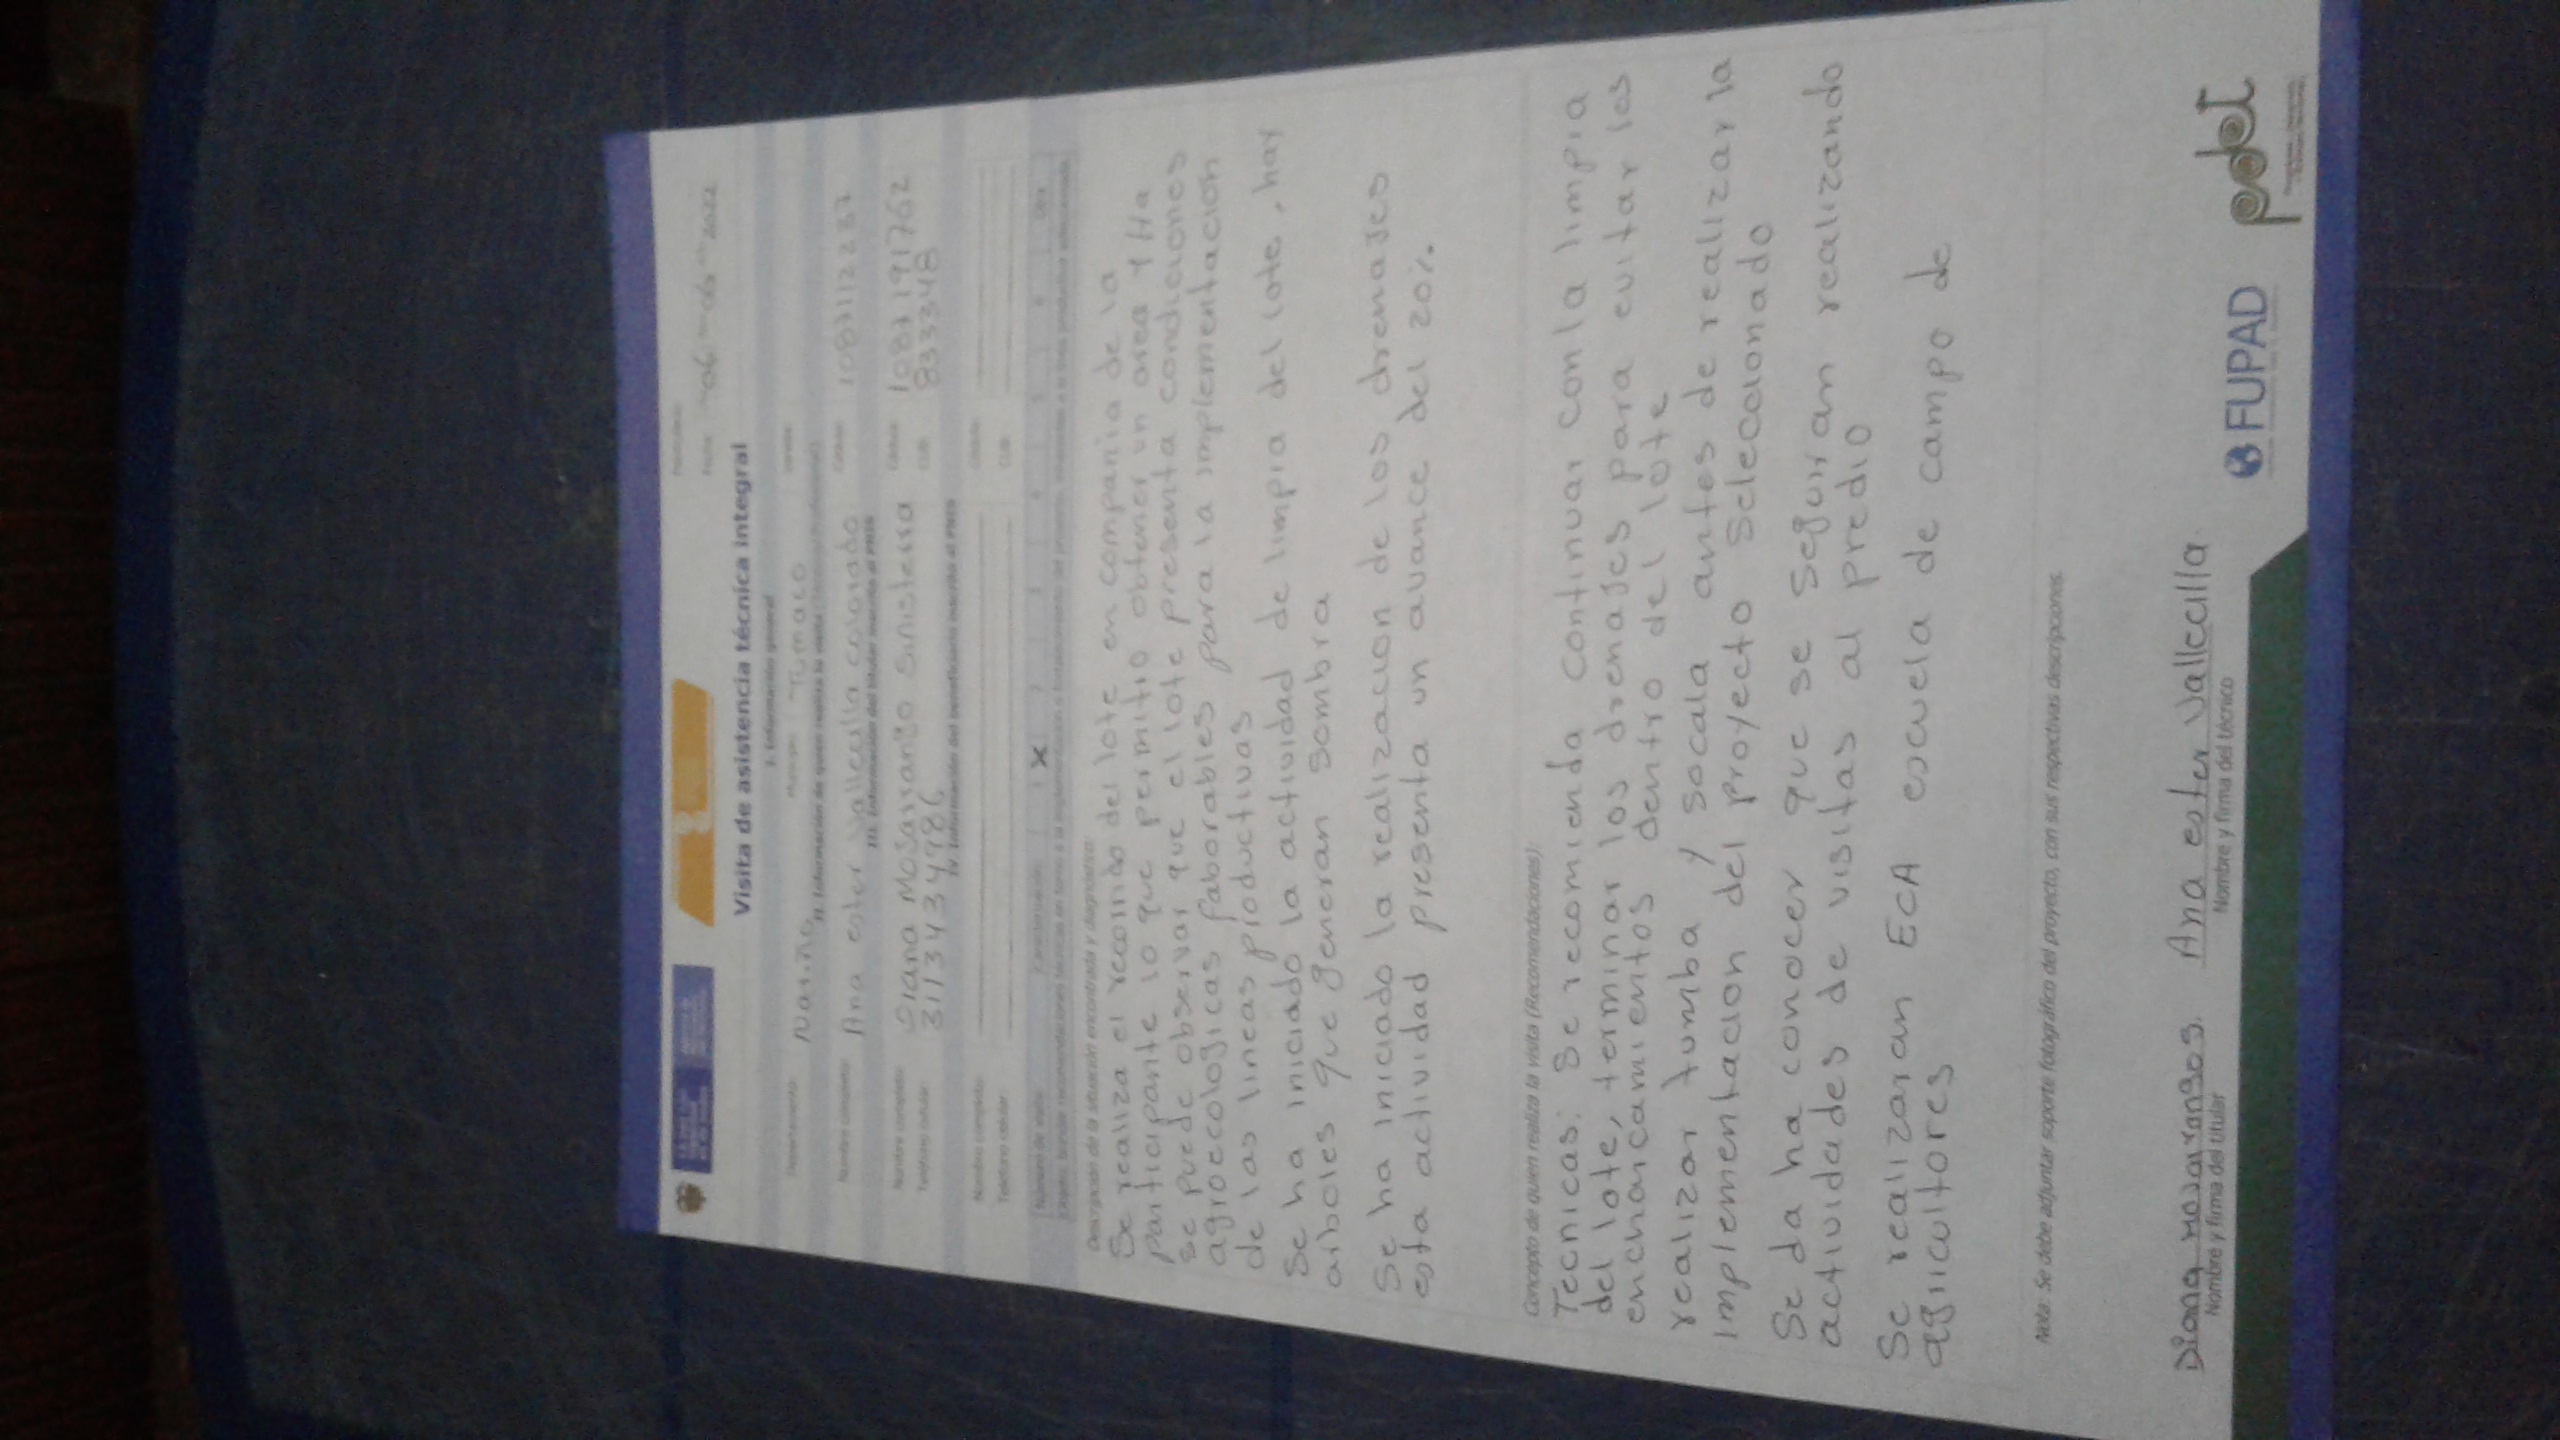 Visita de asistencia técnica integral
Fecha: 06 05 2022
I. Información general
Departamento: Nariño Municipio: Tumaco Vereda:
II. Información de quien realiza la visita
Nombre completo: Ana ester Vallecilla colorado Cédula: 1087112237
III. Información del titular inscrito al PNIS
Nombre completo: Diana Mosayrango Sinisterra Cédula: 1087191762
Teléfono celular: 3113434986 CUB: 8333348
IV. Información del beneficiario inscrito al PNIS
Nombre completo: Cédula:
Teléfono celular: CUB:
Número de visita: Caracterización: 1 X 2 3 4 5 6 Otra
Descripción de la situación encontrada y diagnóstico:
Se realiza el recorrido del lote en compania de la
participante lo que permitio obtener un area 1 Ha
se puede observar que el lote presenta condiciones
agroecologicas faborables para la implementacion
de las lineas productivas
Se ha iniciado la actividad de limpia del lote, hay
arboles que generan sombra
Se ha iniciado la realizacion de los drenajes
esta actividad presenta un avance del 20%.
Concepto de quien realiza la visita (Recomendaciones):
Tecnicas: Se recomienda continuar con la limpia
del lote, terminar los drenajes para evitar los
encharcamientos dentro del lote
realizar tumba y socala antes de realizar la
implementacion del proyecto seleccionado
Se da ha conocer que se seguiran realizando
actividades de visitas al predio
Se realizaran ECA escuela de campo de
agricultores
Nota: Se debe adjuntar soporte fotográfico del proyecto, con sus respectivas descripciones.
Diana mosayrangos. Ana ester Vallecilla
Nombre y firma del titular Nombre y firma del técnico
FUPAD pdet